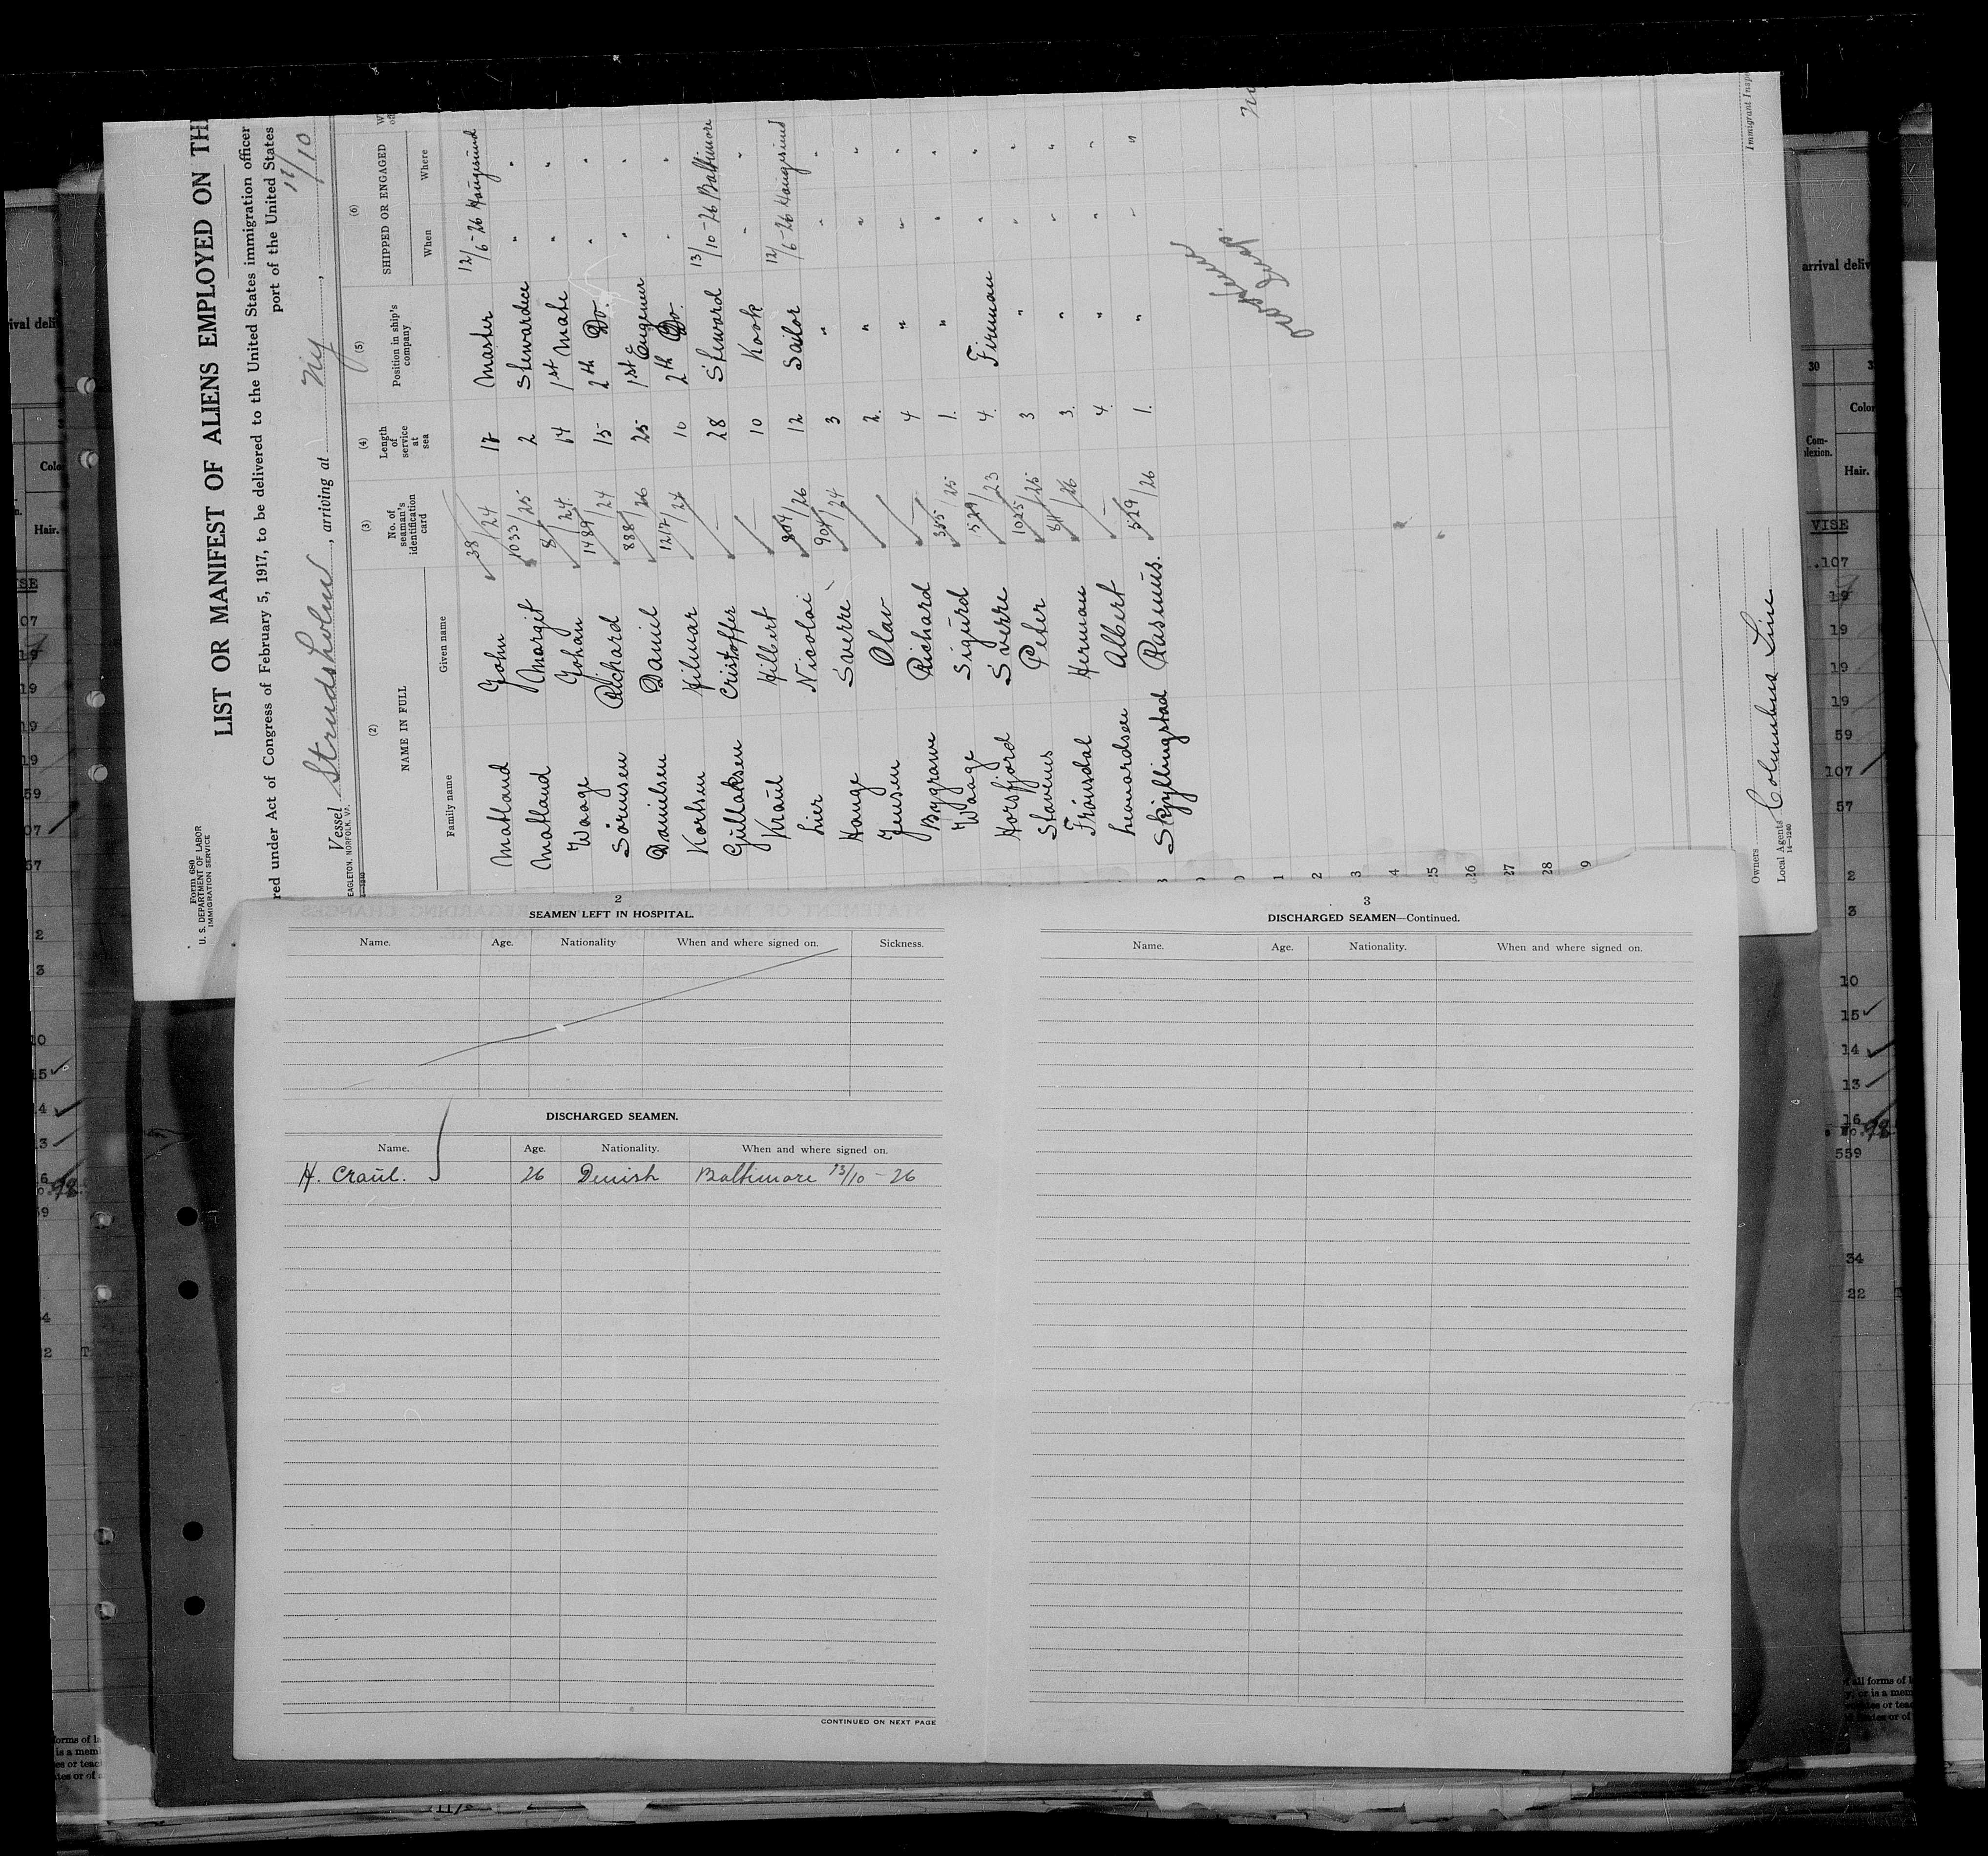 Form 680
U. S. DEPARTMENT OF LABOR
IMMIGRATION SERVICE
LIST OR MANIFEST OF ALIENS EMPLOYED ON TH
red under Act of Congress of February 5, 1917, to be delivered to the United States immigration officer
port of the United States
Vessel Strudsholm, arriving at Ny, 11/10
EAGLETON, NORFOLK, VA.
(2) (3) (4) (5) (6)
NAME IN FULL No. of seaman's identification card Length of service at sea Position in ship's company SHIPPED OR ENGAGED
Family name Given name When Where
Matland John 38/24 17 Master 12/6-26 Haugesund
Matland Margit 1033/25 2 Stewardice " "
Waage Johan 8/24 14 1st Mate " "
Sörensen Richard 1489/24 15 2th Do. " "
Danielsen Daniel 888/26 25 1st Engeneer " "
Korlsen Hilmar 1217/24 10 2th Do. " "
Gullaksen Cristoffer - 28 Steward 13/10-26 Baltimore
Kraul Hilbert - 10 Kook " "
Lier Nicolai 804/26 12 Sailor 12/6-26 Haugesund
Hauge Sverre 904/24 3 " " "
Jensen Olav 2. " " "
Bygrave Richard - 4 " " "
Waage Sigurd 355/25 1. " " "
Horsfjord Sverre 529/23 4. Fireman " "
Stavenes Peter 1025/25 3 " " "
Frønsdal Herman 84/26 3. " " "
Lennardsen Albert - 4. " " "
Skjyllingstad Rasmus. 529/26 1. " " "
25
26
27
28
Owners
Local Agents Columbus Line
14—1240
Immigrant Insp
2
SEAMEN LEFT IN HOSPITAL.
Name. Age. Nationality When and where signed on. Sickness.
DISCHARGED SEAMEN.
Name. Age. Nationality. When and where signed on.
H. Craul. 26 Denish Baltimore 13/10-26
CONTINUED ON NEXT PAGE
3
DISCHARGED SEAMEN—Continued.
Name. Age. Nationality. When and where signed on.
arrival deliv
30
Color
Com-
plexion.
Hair.
VISE
.107
19
19
19
19
59
107
57
2
3
10
15
14
13
16
98
559
34
22